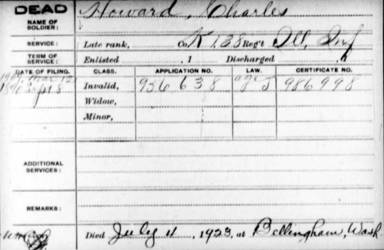 DEAD Howard, Charles
NAME OF SOLDIER:
SERVICE: Late rank, Co. K, 138 Reg't Ill. Inf
TERM OF SERVICE: Enlisted , 1 Discharged
DATE OF FILING. CLASS. APPLICATION NO. LAW. CERTIFICATE NO.
Invalid, 936638 986998
Widow,
Minor,
ADDITIONAL SERVICES:
REMARKS:
Died July 11, 1923, at Bellingham, Wash